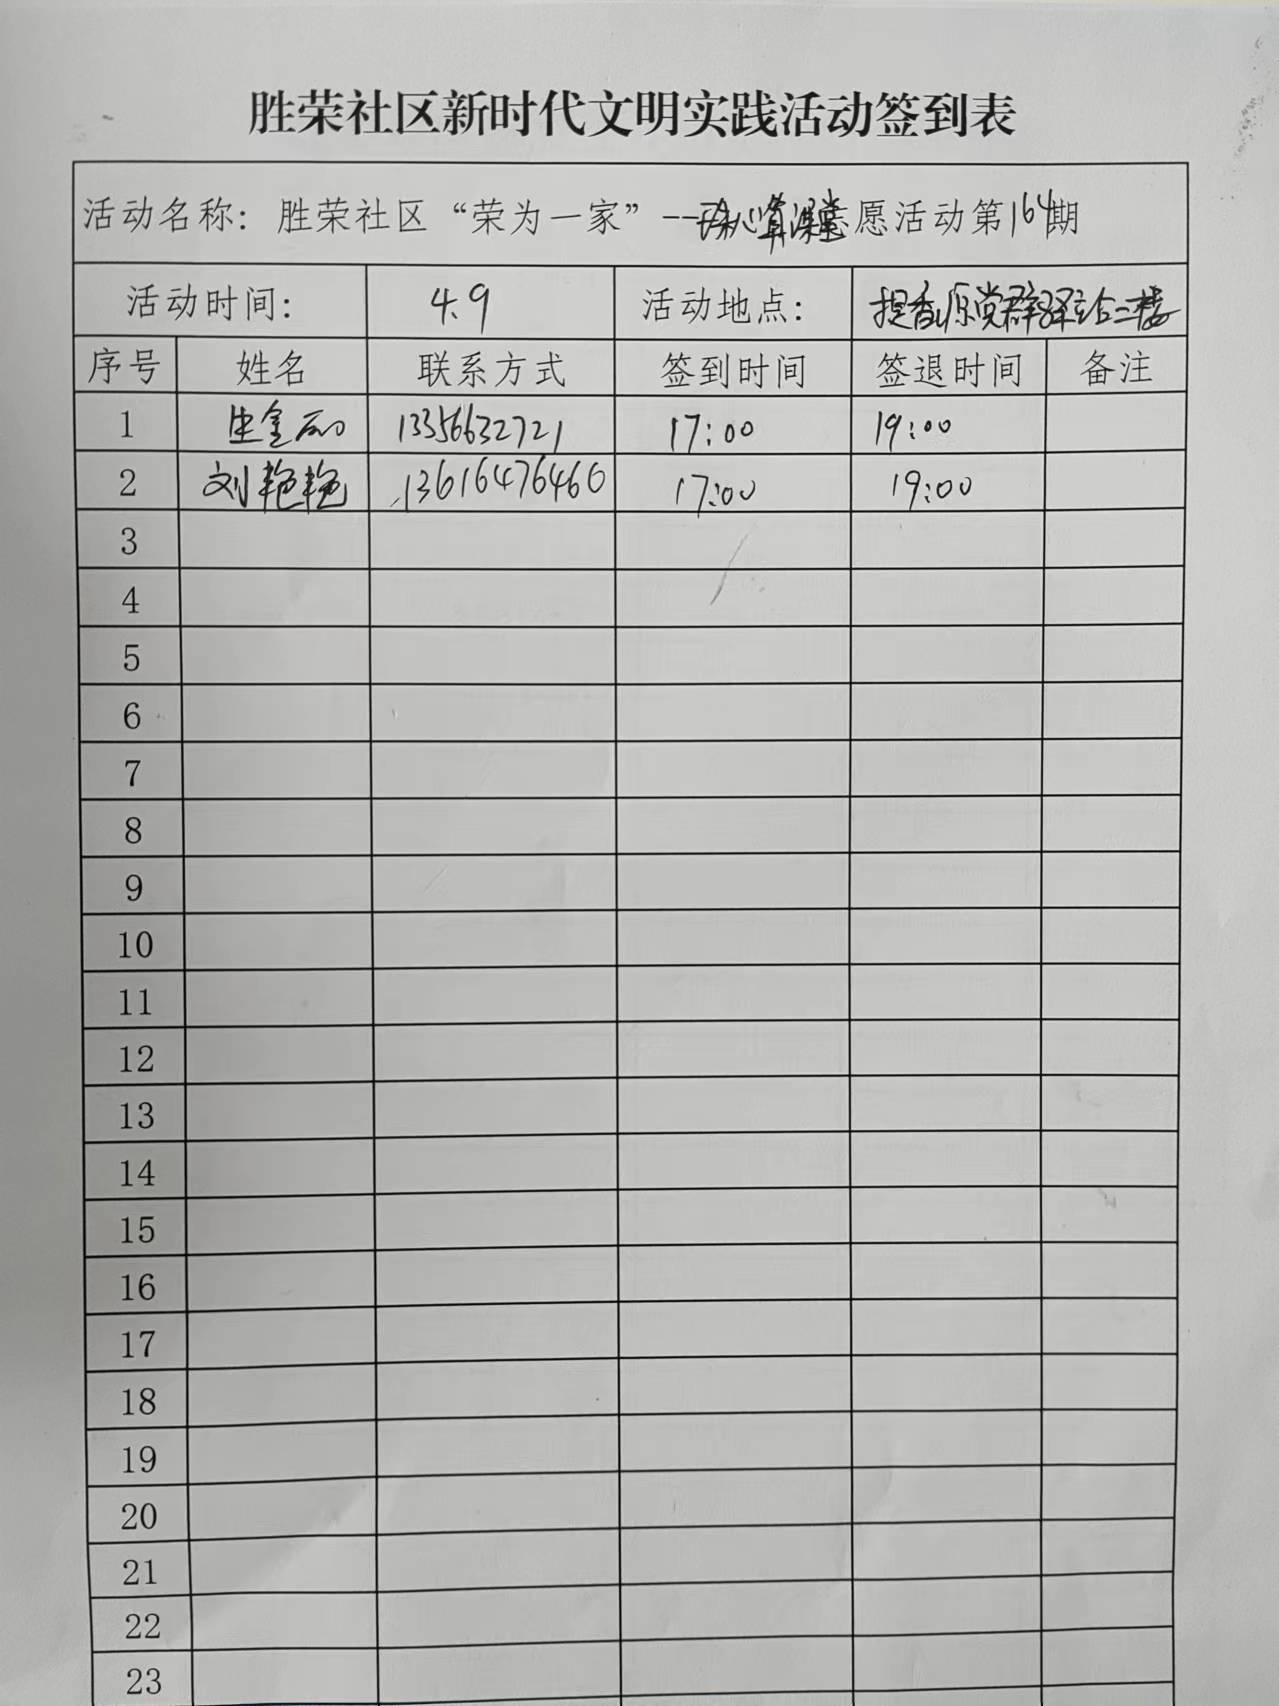 胜荣社区新时代文明实践活动签到表
活动名称：胜荣社区“荣为一家”--珠心算课堂志愿活动第164期
活动时间： 4.9 活动地点： 提香源党群驿站二楼
序号 姓名 联系方式 签到时间 签退时间 备注
1 13356632721 17:00 19:00
2 刘艳艳 13616476460 17:00 19:00
3
4
5
6
7
8
9
10
11
12
13
14
15
16
17
18
19
20
21
22
23